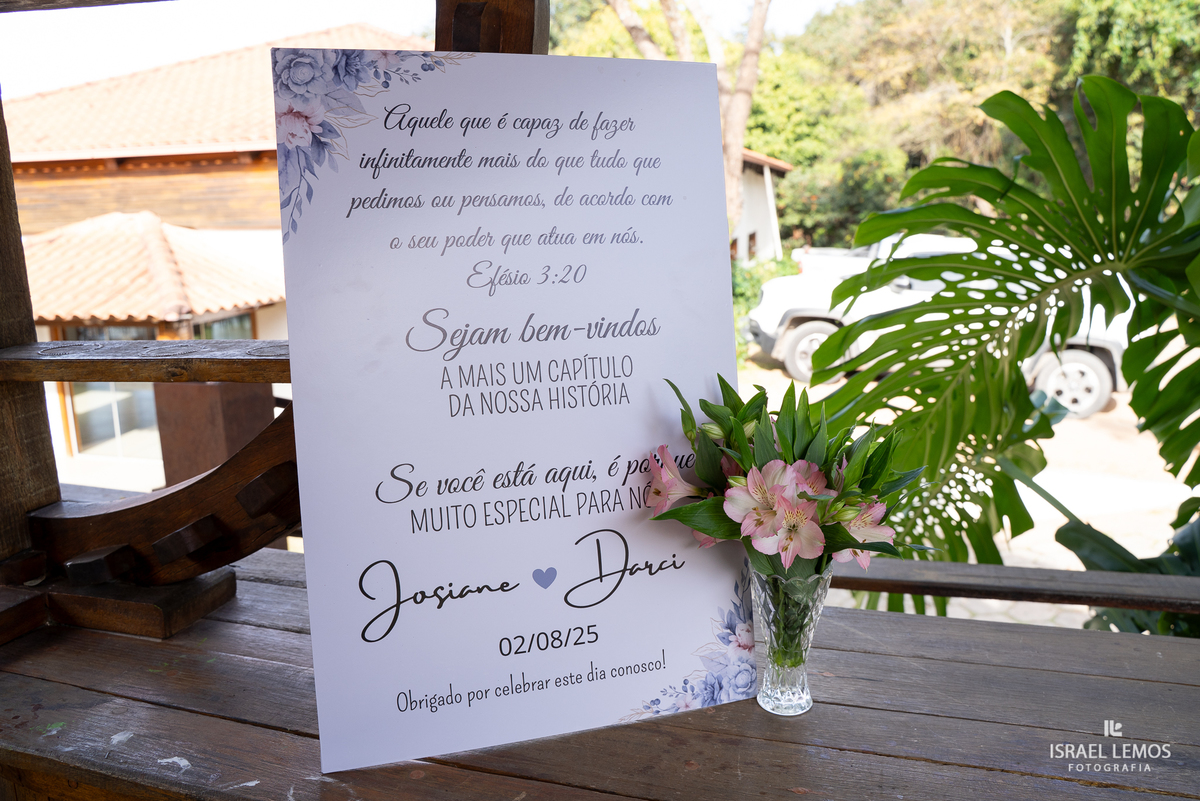 Aquele que é capaz de fazer
infinitamente mais do que tudo que
pedimos ou pensamos, de acordo com
o seu poder que atua em nós.
Efésio 3:20
Sejam bem-vindos
A MAIS UM CAPÍTULO
DA NOSSA HISTÓRIA
Se você está aqui, é
MUITO ESPECIAL PARA
Josiane Darci
02/08/25
Obrigado por celebrar este dia conosco!
ISRAEL LEMOS
FOTOGRAFIA